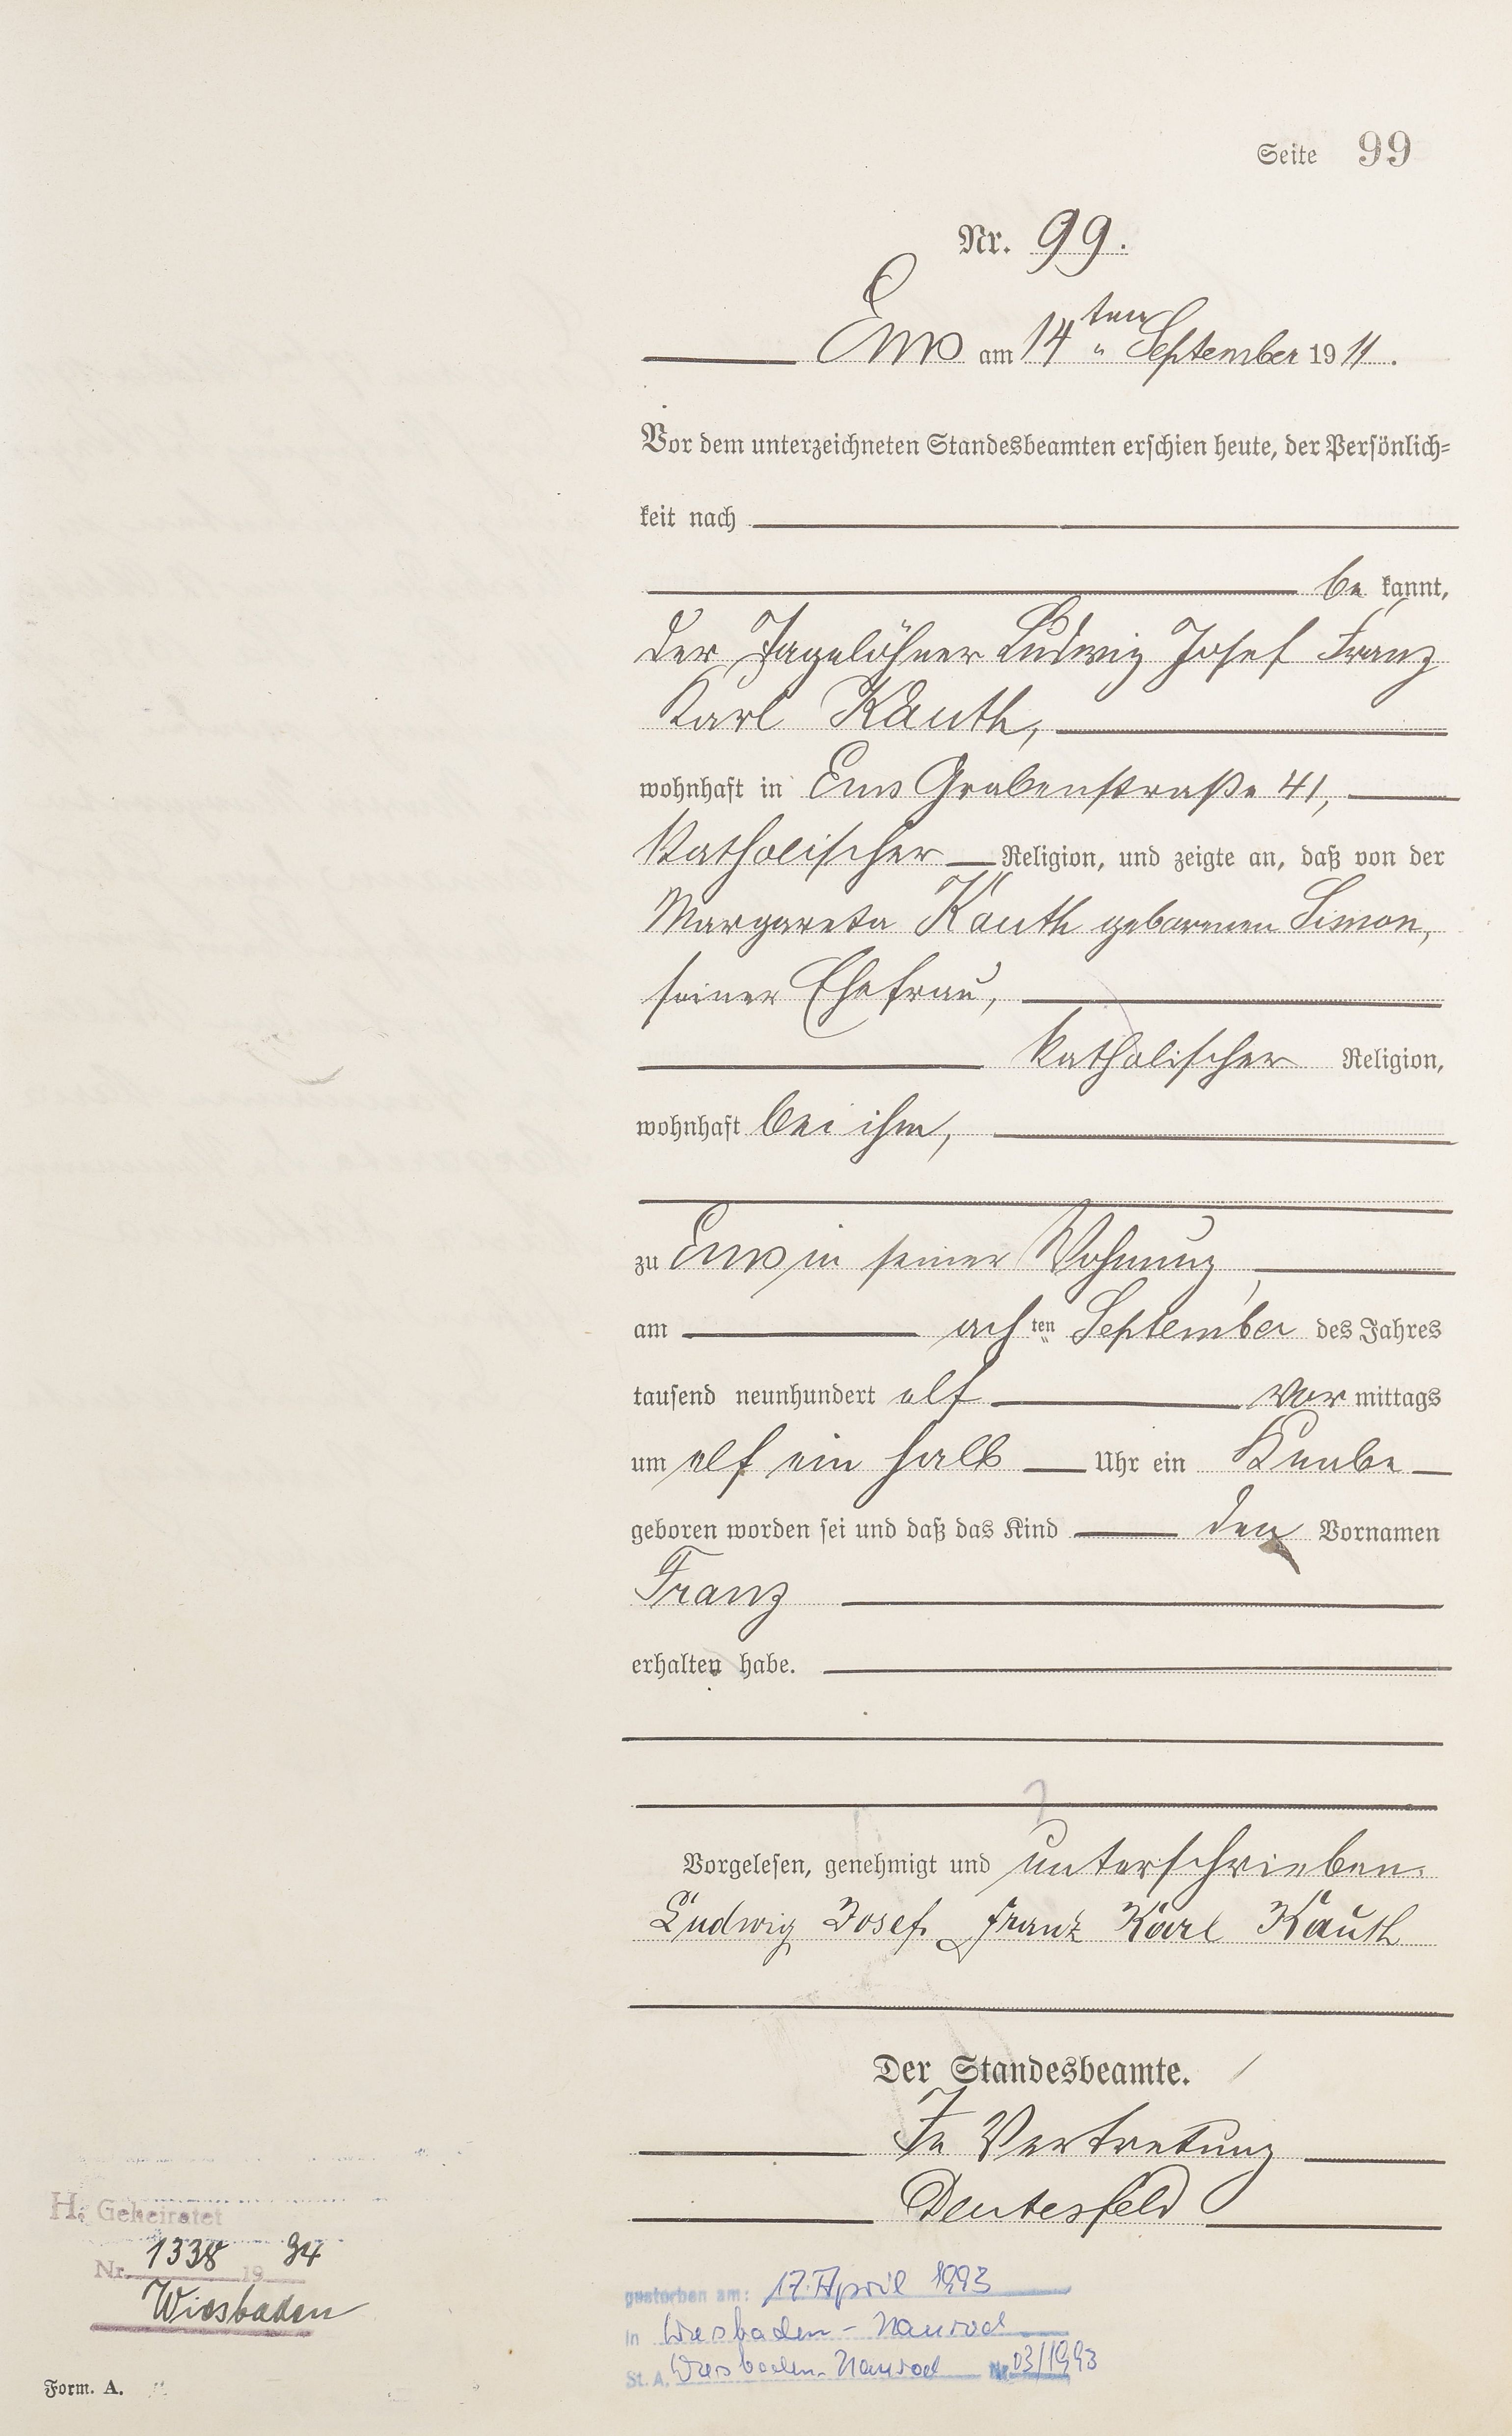 Seite 99
Nr. 99.
Ems am 14ten September 1911.
Vor dem unterzeichneten Standesbeamten erschien heute, der Persönlich=
keit nach
be kannt,
der Tagelöhner Ludwig Josef Franz
Karl Kauth,
wohnhaft in Ems Grabenstraße 41,
katholischer Religion, und zeigte an, daß von der
Margareta Kauth geborenen Simon,
seiner Ehefrau,
katholischer Religion,
wohnhaft bei ihm,
zu Ems in seiner Wohnung,
am achten September des Jahres
tausend neunhundert elf vor mittags
um elf ein halb Uhr ein Knabe
geboren worden sei und daß das Kind den Vornamen
Franz
erhalten habe.
Vorgelesen, genehmigt und unterschrieben.
Ludwig Josef Franz Karl Kauth
Der Standesbeamte.
In Vertretung
Deutesfeld
H. Geheiratet
Nr. 1338 1934
Wiesbaden
gestorben am: 17. April 1993
in Wiesbaden-Naurod
St. A. Wiesbaden-Naurod Nr. 03/1993
Form. A.